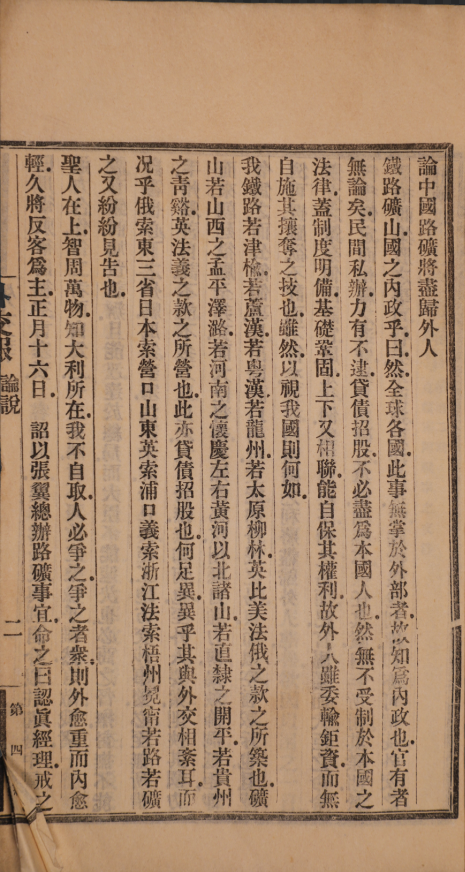 論中國路礦將盡歸外人
鐵路礦山國之內政乎曰然全球各國此事無掌於外部者故知爲內政也官有者
無論矣民間私辦力有不逮貸債招股不必盡爲本國人也然無不受制於本國之
法律蓋制度明備基礎鞏固上下又相聯能自保其權利故外人雖委輸鉅資而無
自施其攘奪之技也雖然以視我國則何如
我鐵路若津楡若蘆漢若粤漢若龍州若太原柳林英比美法俄之款之所築也礦
山若山西之盂平澤潞若河南之懷慶左右黃河以北諸山若直隸之開平若貴州
之青谿英法義之款之所營也此亦貸債招股也何足異異乎其與外交相紊耳而
况乎俄索東三省日本索營口山東英索浦口義索浙江法索梧州若路若礦
之又紛紛見告也
聖人在上智周萬物知大利所在我不自取人必爭之爭之者衆則外愈重而內愈
輕久將反客爲主正月十六日 詔以張翼總辦路礦事宜命之曰認眞經理戒之
外交報 論説 二 第四